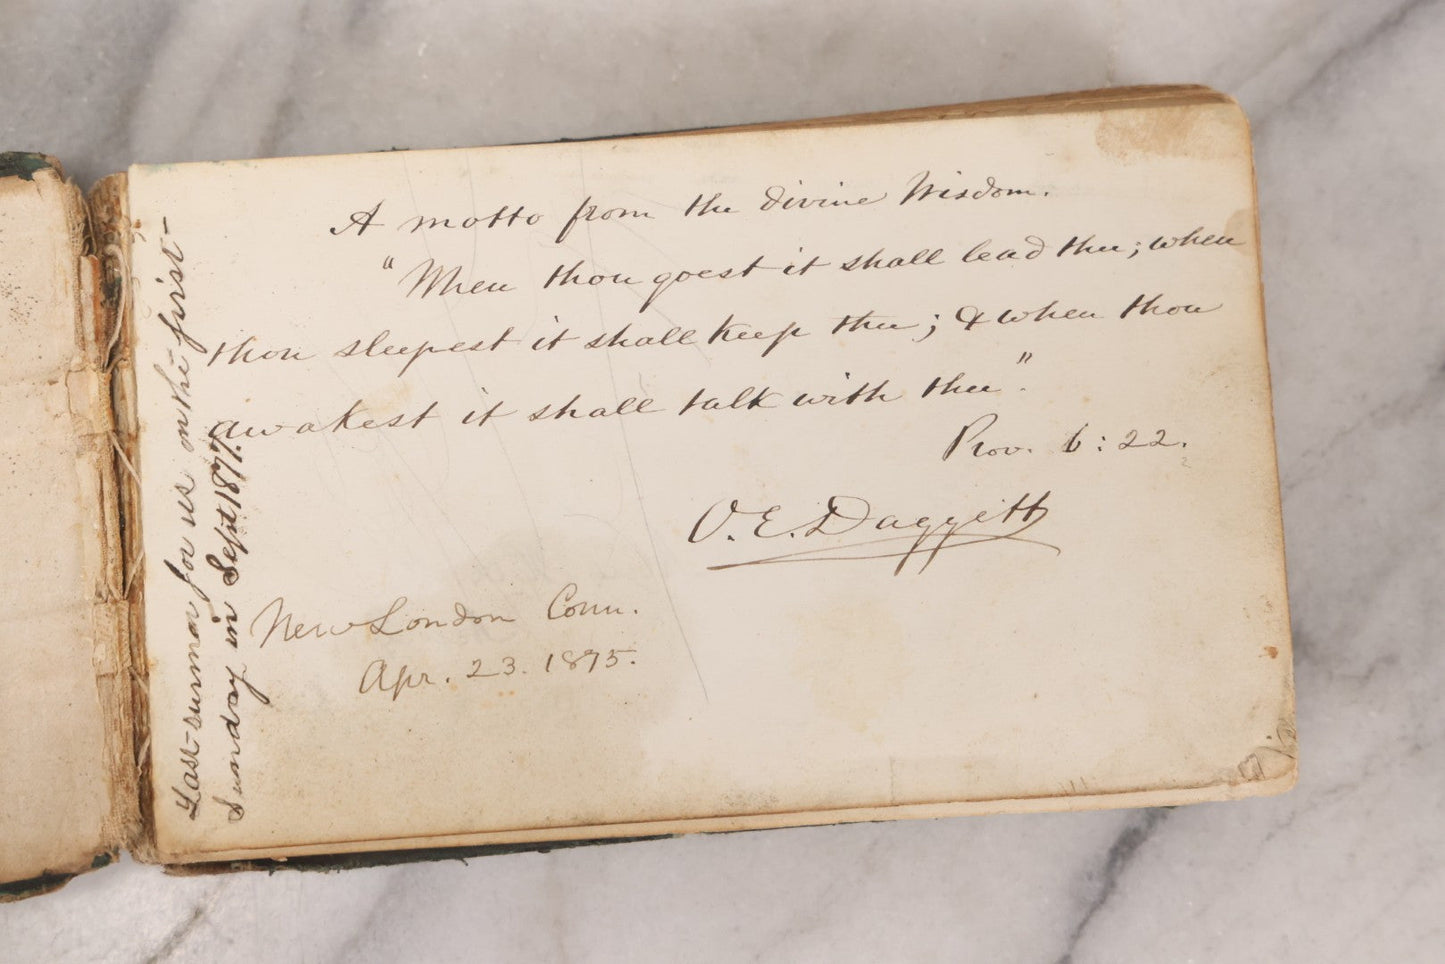 A motto from the divine Wisdom.
"When thou goest it shall lead thee; when
thou sleepest it shall keep thee; & when thou
awakest it shall talk with thee".
Prov. 6:22.
O. E. Daggett
New London Conn.
Apr. 23. 1875.
Last sermon for us on the first
Sunday in Sept 1877.